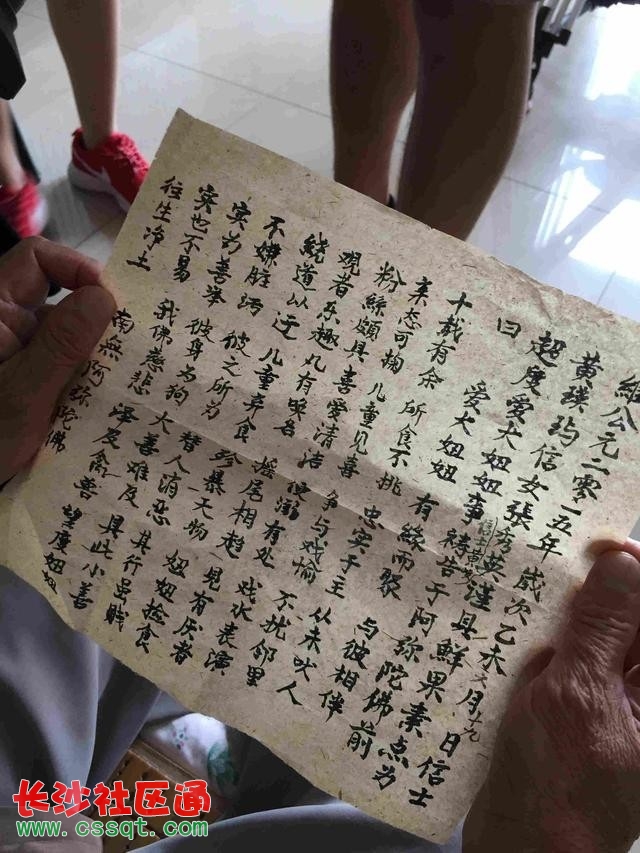 維公元二零一五年歲次乙未六月十九日信士
黃璞玓信女張秀英谨具鮮果素点为
超度爱犬妞妞事特告于阿弥陀佛前
曰 爱犬妞妞 有緣而聚 与彼相伴
十载有余 所食不挑 忠实于主 从未吠人
亲态可掬 儿童见喜 争与戏愉 不扰邻里
粉絲颇具 喜爱清洁 便溺有处 戏水表演
观者乐趣 凡有唤名 摇尾相趋 见有厌者
绕道以迂 儿童弃食 珍暴天物 妞妞捡食
不嫌脏污 彼之所为 替人消恶 其行虽贱
实为善举 彼身为狗 大善难及 具此小善
实也不易 我佛慈悲 泽及禽兽 望度妞妞
往生净土 南無阿弥陀佛
长沙社区通
www.cssqt.com